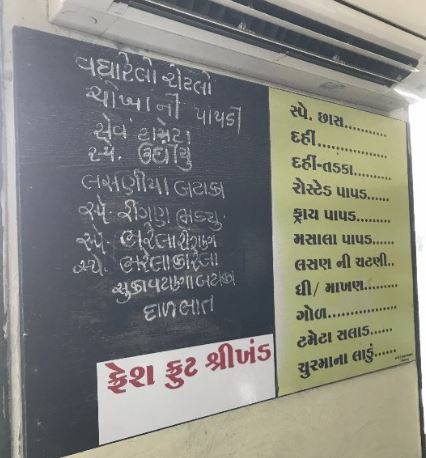 વઘારેલો રોટલો
ચોખાની પાપડી
સેવ ટામેટા
સ્પે. ઉંધીયુ
લસણીયા બટાકા
સ્પે. રીંગણ ભડથુ.
સ્પે. ભરેલા રીંગણ
સ્પે. ભરેલા કારેલા
સુકાવટાણા બટાકા
દાળભાત
ફ્રેશ ફ્રુટ શ્રીખંડ
સ્પે. છાસ...........
દહીં...................
દહીં-તડકા............
રોસ્ટેડ પાપડ......
ફ્રાય પાપડ.........
મસાલા પાપડ......
લસણ ની ચટણી..
ઘી/ માખણ.........
ગોળ..................
ટમેટા સલાડ......
ચુરમાના લાડું......